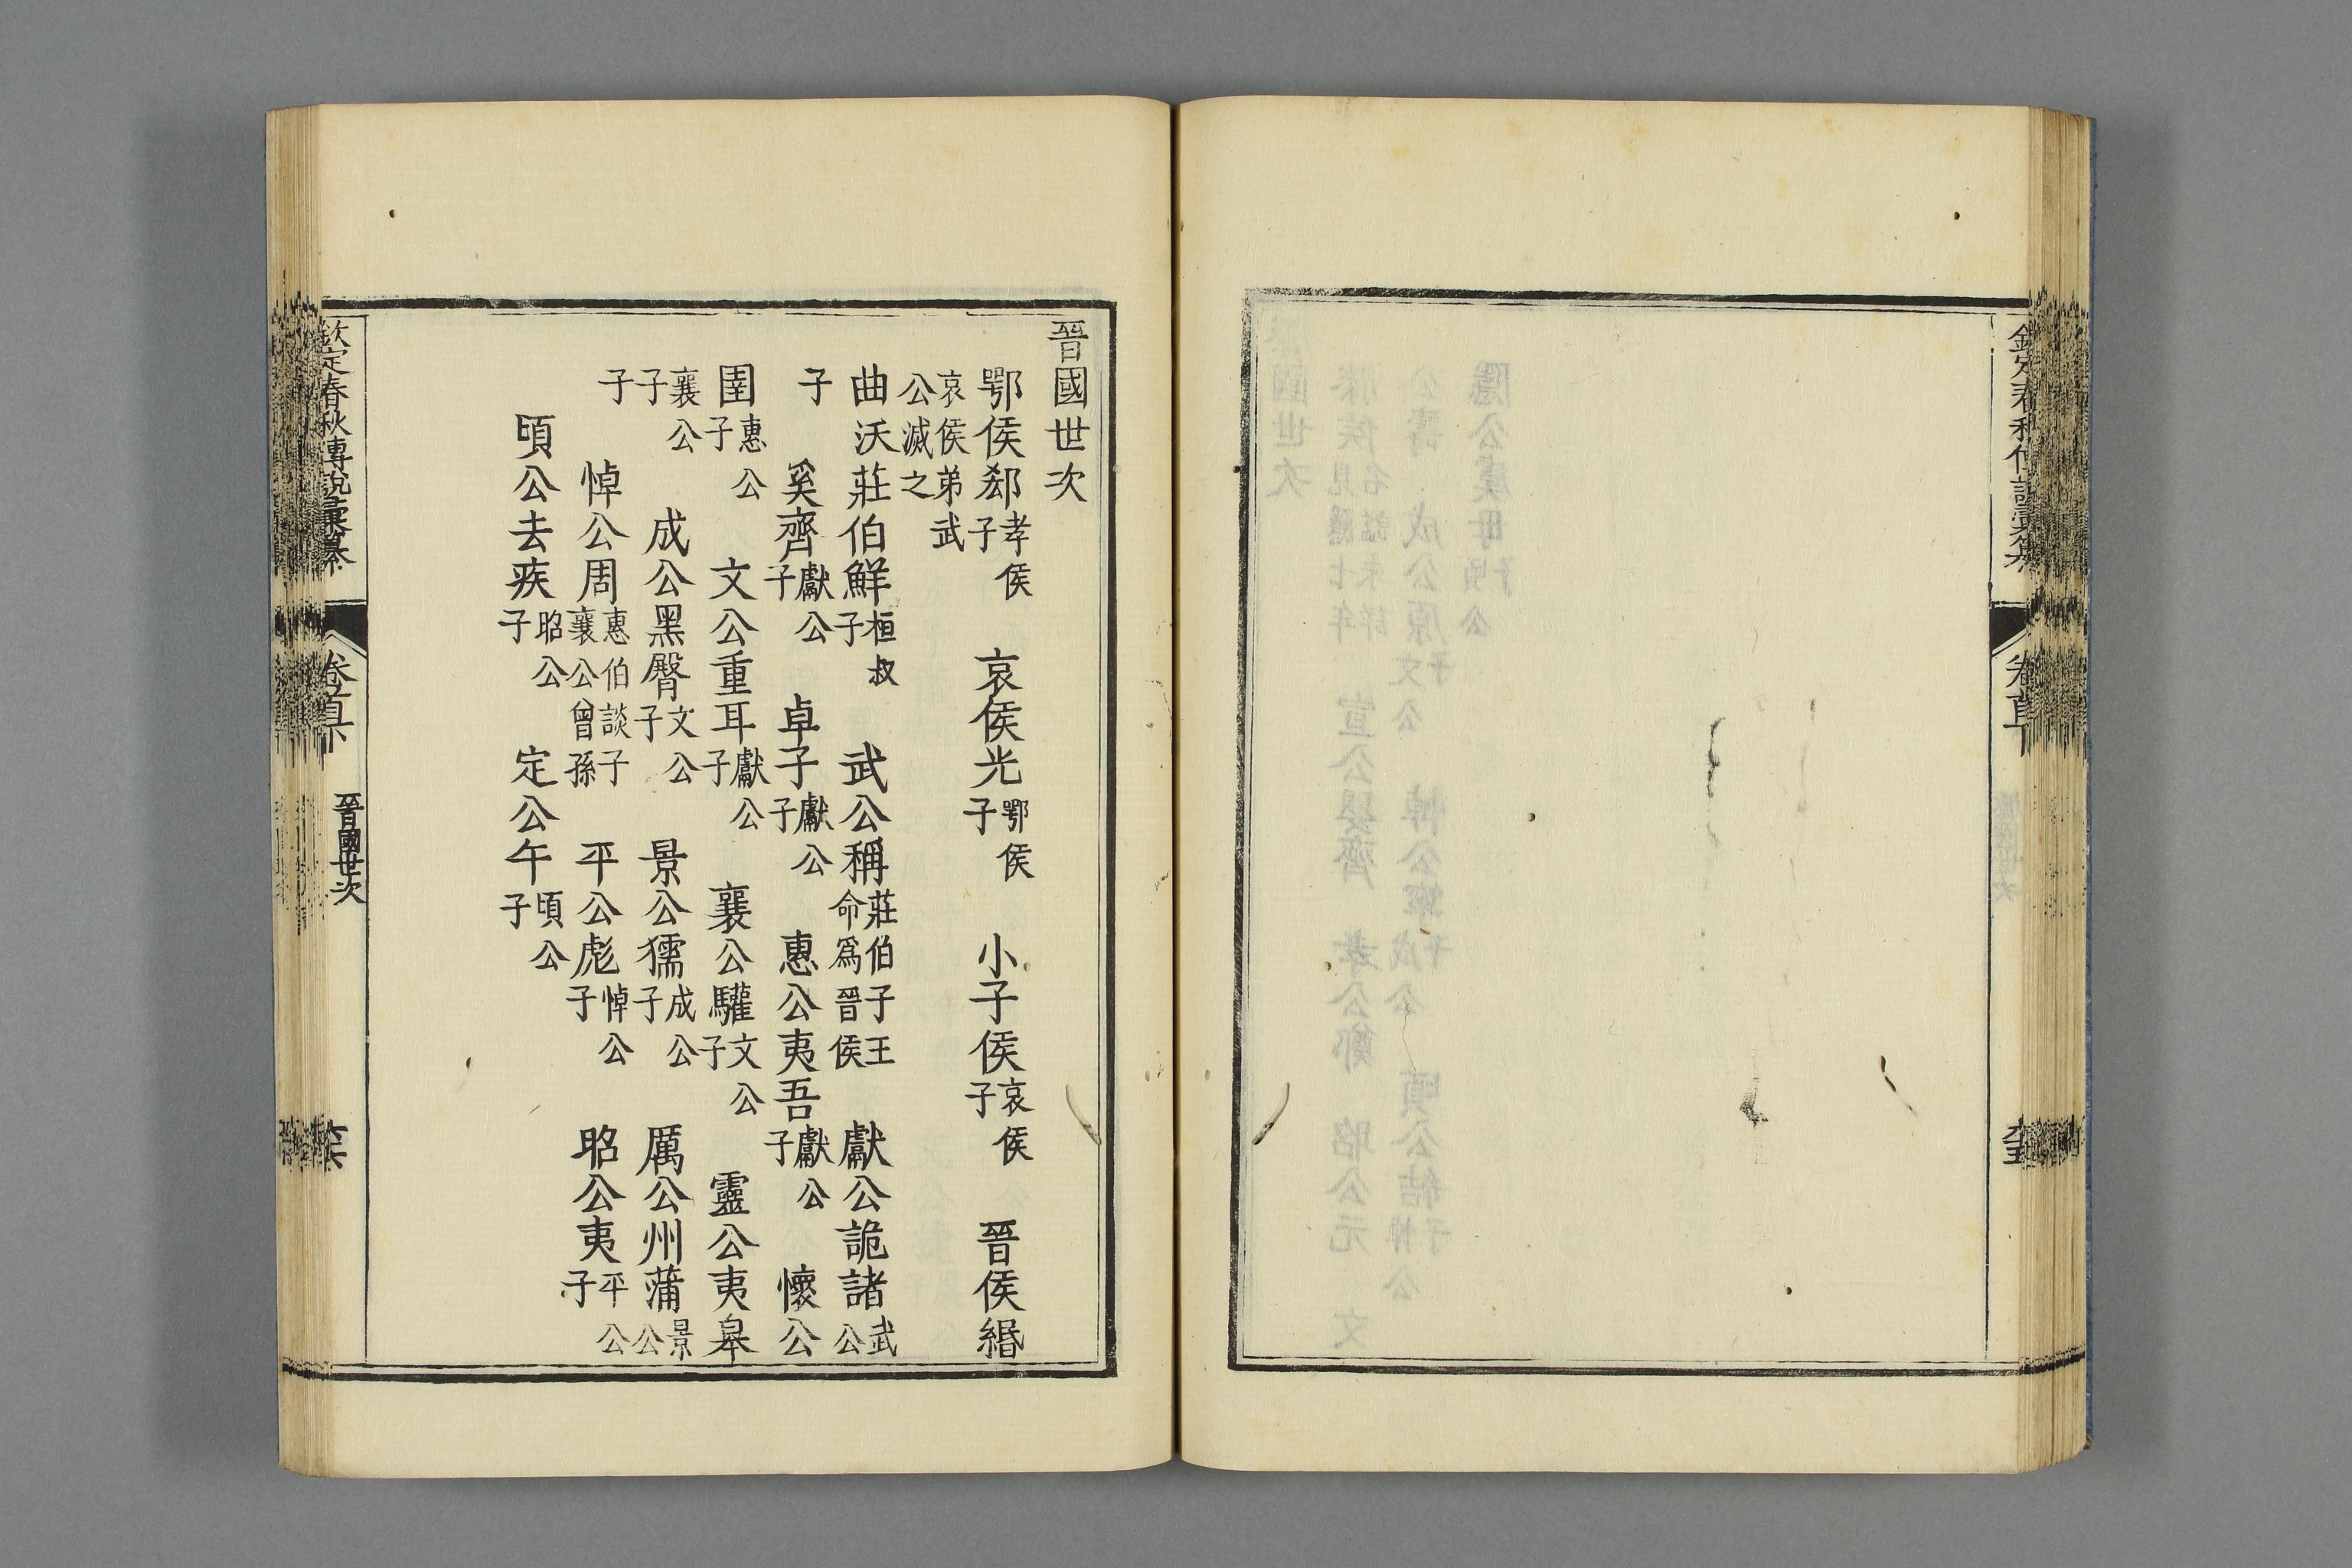 晉國世次
鄂侯郄孝侯子 哀侯光鄂侯子 小子侯哀侯子 晉侯緡
哀侯弟武公滅之
曲沃莊伯鮮桓叔子 武公稱莊伯子王命爲晉侯 獻公詭諸武公
子 奚齊獻公子 卓子獻公子 惠公夷吾獻公子 懷公
圉惠公子 文公重耳獻公子 襄公驩文公子 靈公夷皋
襄公子 成公黑臀文公子 景公獳成公子 厲公州蒲景公
子 悼公周惠伯談子襄公曾孫 平公彪悼公子 昭公夷平公子
頃公去疾昭公子 定公午頃公子
欽定春秋傳說彙纂 卷首下 晉國世次
欽定春秋傳說彙纂 卷首下